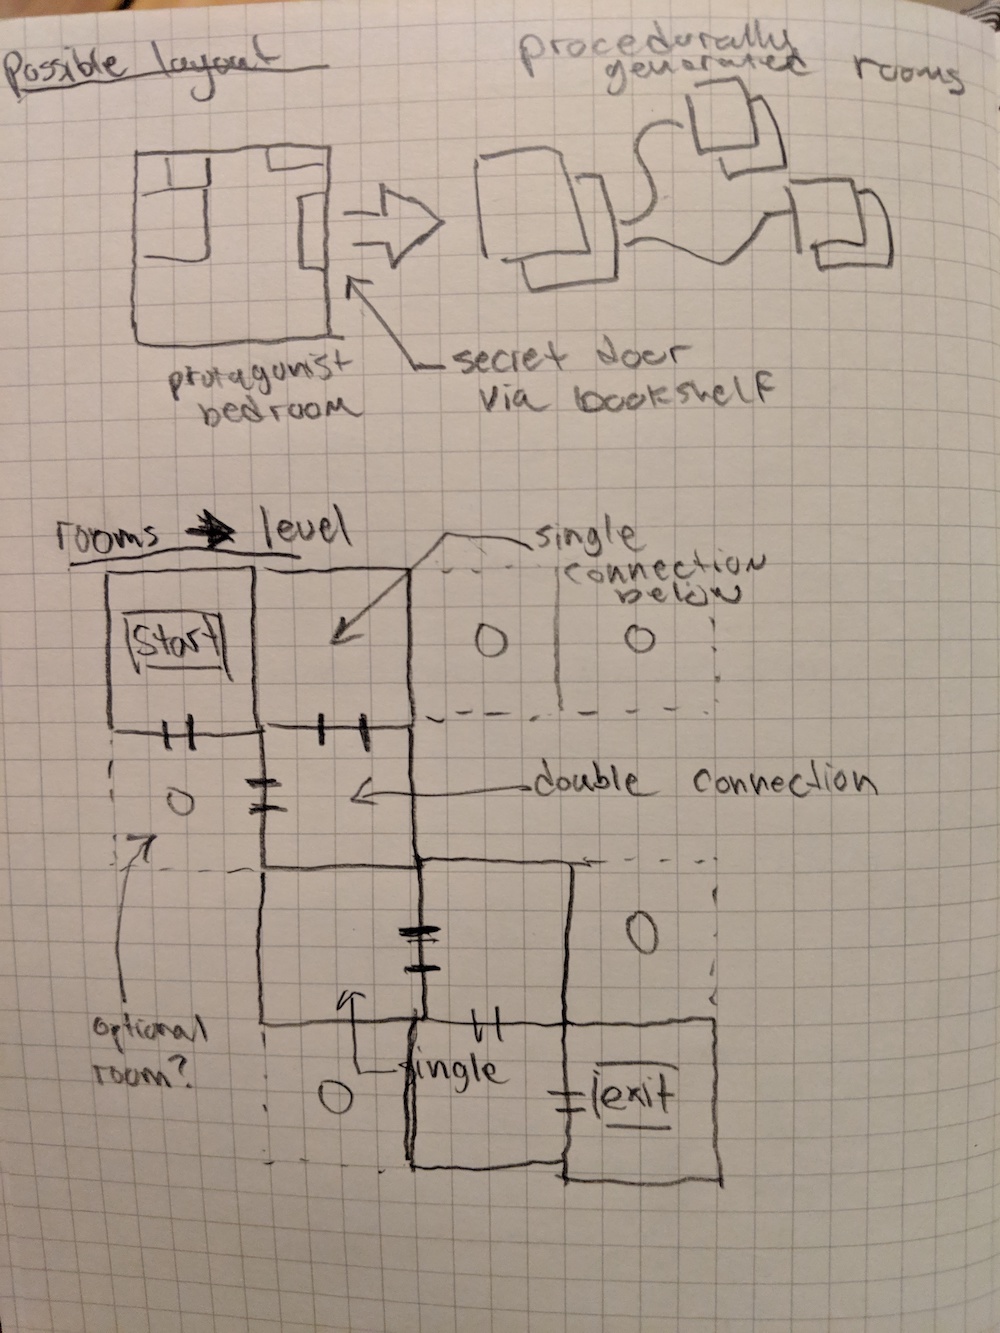 Possible layout
procedurally
generated rooms
protagonist
bedroom
secret door
via bookshelf
rooms → level
single
connection
below
Start
O
O
O
double connection
O
optional
room?
single
O
exit